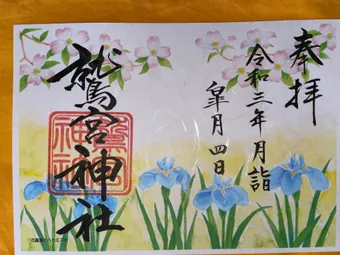 奉拝
令和三年月詣
皐月四日
鷲宮神社